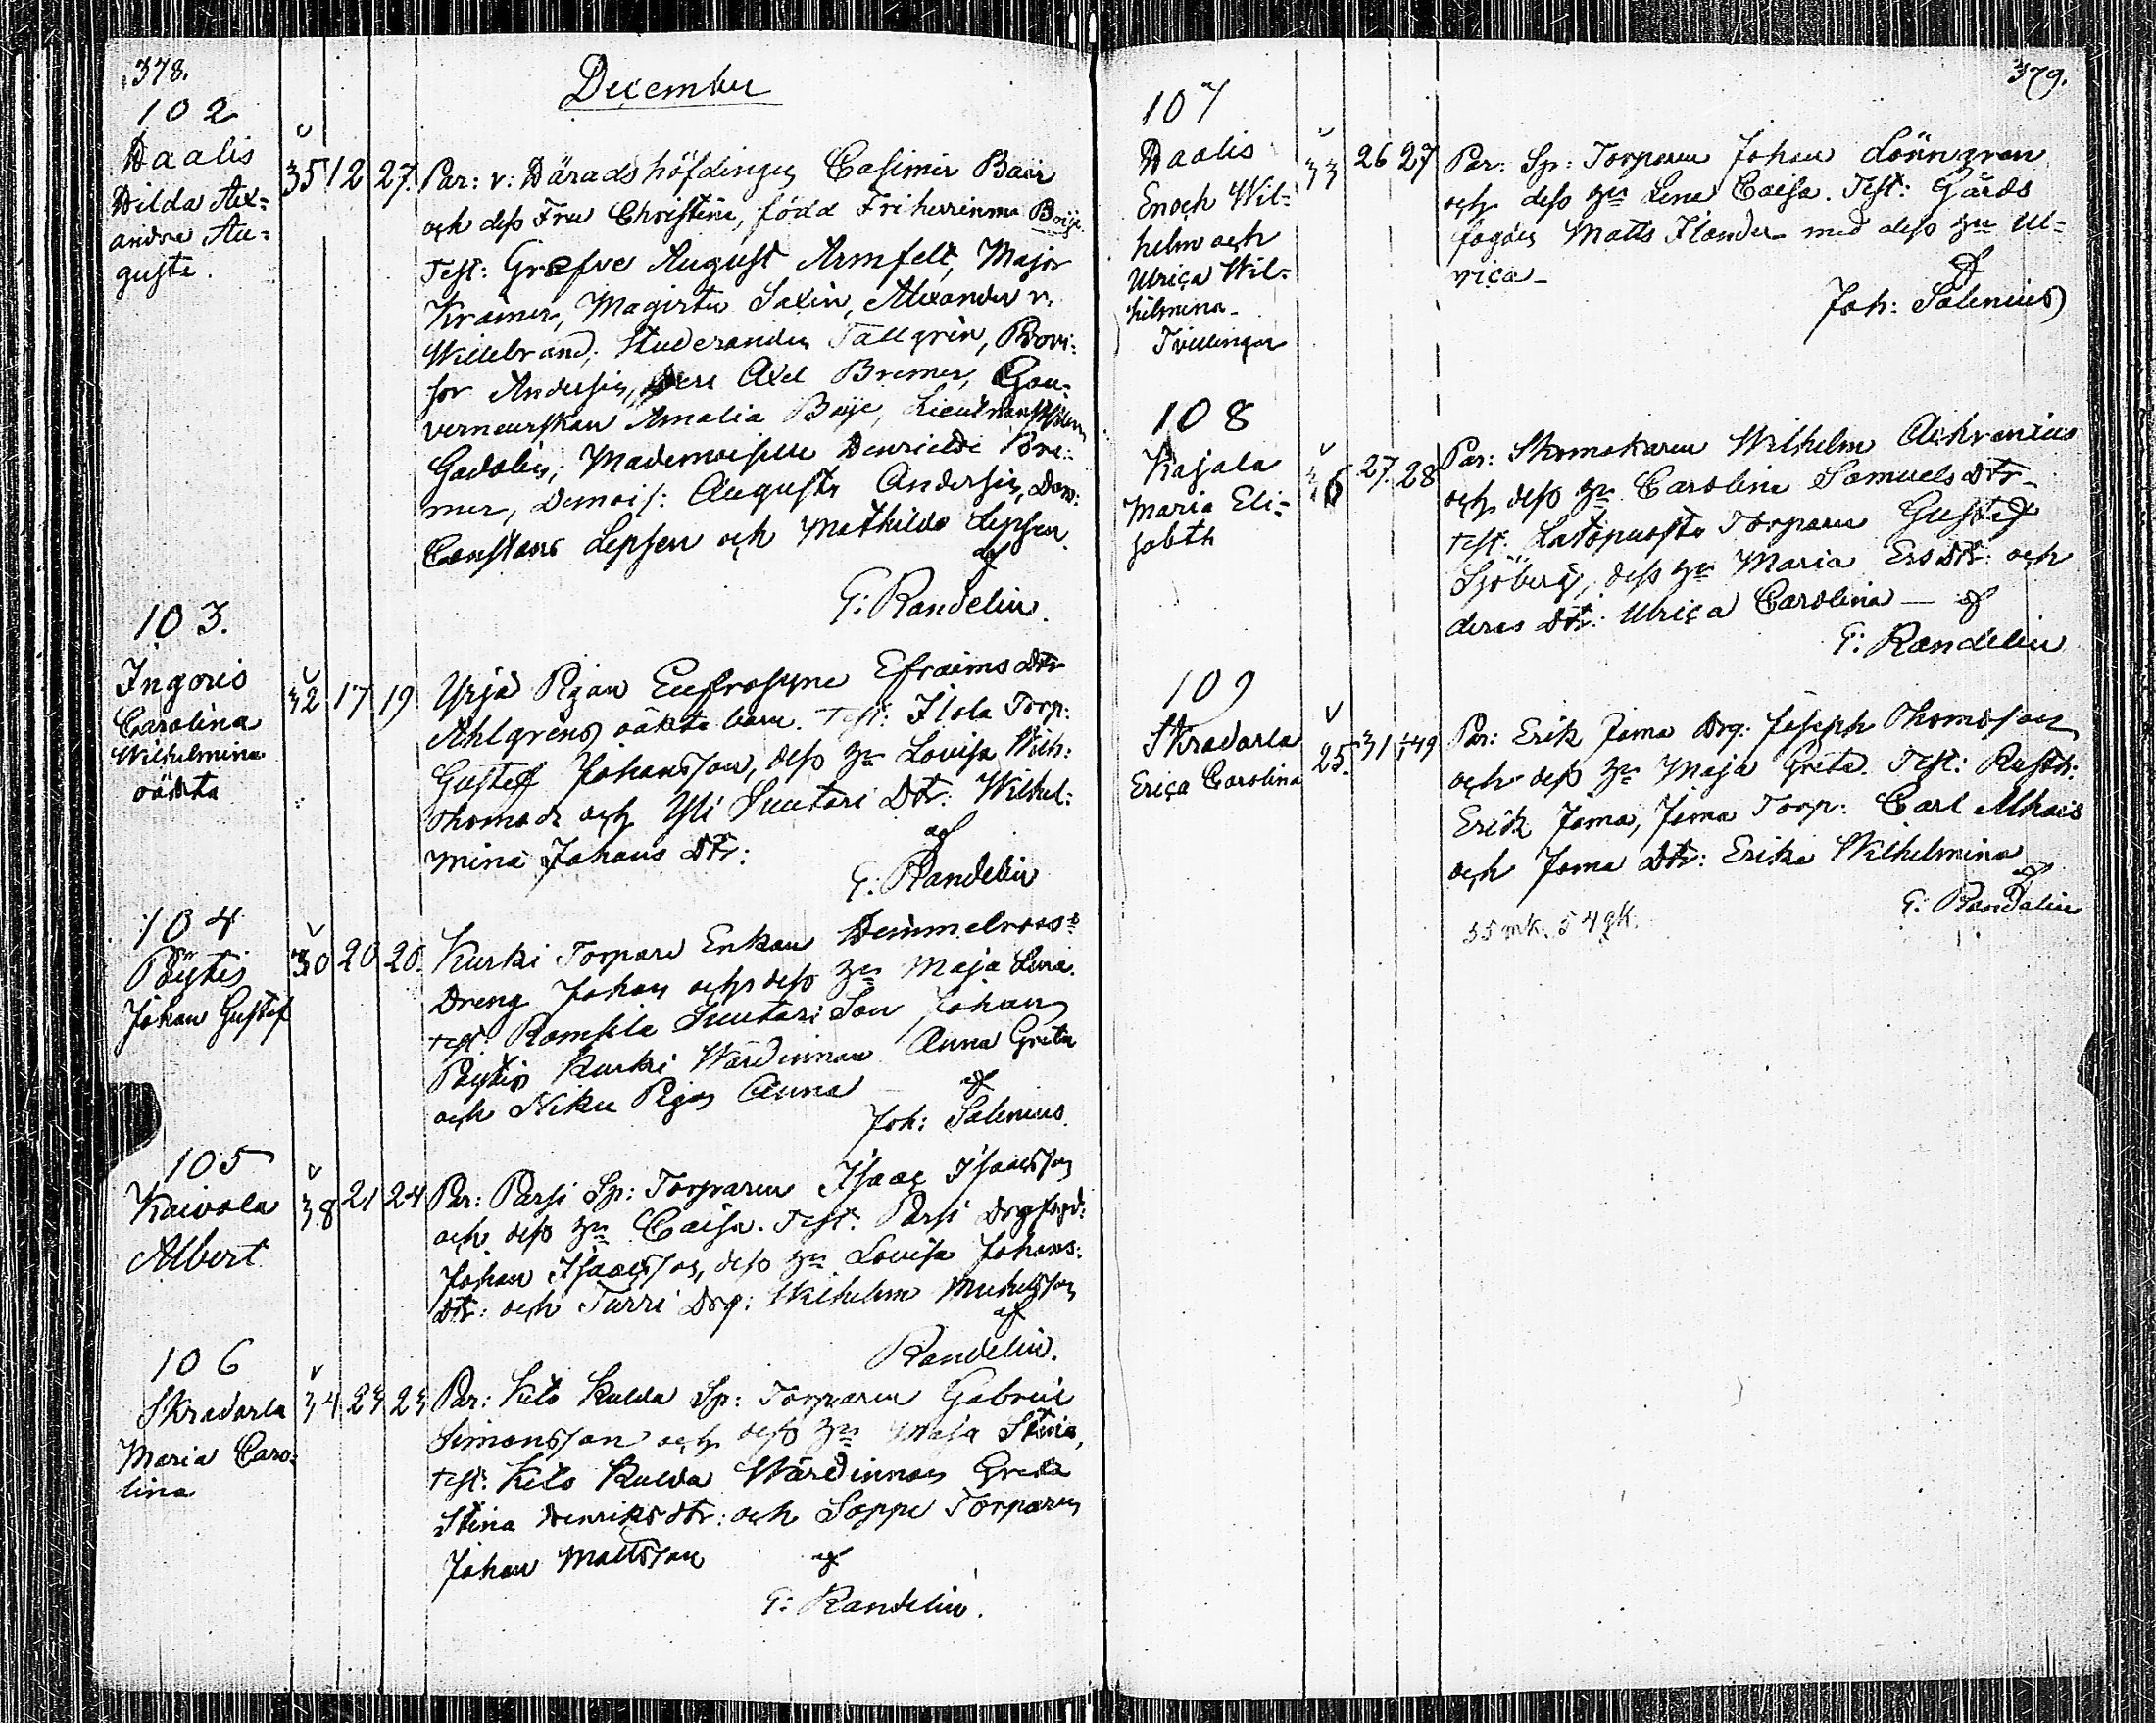 378.
December
102
Haalis
Hilda Alex=
andra Au=
gusta.
35 12 27.
Par: v: Häradshöfdingen Casimir Baer
och dess Fru Christine, född Friherrinna Boije
Test: Grefve August Armfelt, Major
Kramer, Magister Salin, Alexander v.
Willebrand, Studeranden Tallgrin, Provi:
sor Andersin, Herr Axel Bremer, Gou=
verneurskan Amalia Boije,
Gadolin, Mademoiselle Henriette Bre=
mer, Demois: Augusta Andersin, Dem:
Constans Lepsen och Mathilda Lepsen
af
G: Randelin.
103.
Ingoris
Carolina
Wilhelmina
oäkta
32 17 19
Yrjä Pigan Eufrosyne Efraims Dtr
Ahlgrens oäkta barn. Test: Ilola Torp:
Gustaf Johansson, dess hu Lovisa Wilh:
Thomas dr och Yli Suutari Dtr: Wilhel:
mina Johans Dtr:
af
G: Randelin
104
Pöytis
Johan Gustaf
30 20 26.
Kurki Torpare Enkan Himmelroos
Dreng Johan och dess hu Maja Lena.
Test: Ramsila Suutari Son Johan
Pöytis Kurki Wärdinnan Anna Greta
och Niku Pigan Anna
af
Joh: Salenius.
105
Kaivola
Albert
38 21 24
Par: Parsi Sp: Torparen Isaac Isaacsson
och dess hu Caisa. Test: Parsi
Johan Isaacsson, dess hu Lovisa Johans:
Dtr: och Turri Drg: Wilhelm Michelsson
af
Randelin.
106
Skradarla
Maria Caro=
lina
34 23 23
Par: Kilo Kulda Sp: Torparen Gabriel
Simonsson och dess hu Maja Stina,
Test: Kilo Kulda Wärdinnan Greta
Stina Henriks dtr: och Soppi Torparen
Johan Mattsson
af
G: Randelin.
379.
107
Haalis
Enoch Wil=
helm och
Ulrica Wil=
helmina
Tvillingar
33 26 27
Par: Sp: Torparen Johan Lönngren
och dess hu Lena Caisa. Test: Gårds
fogden Matts Ilander med dess hu Ul=
rica
af
Joh: Salenius
108
Kajala
Maria Eli=
sabeth
36 27. 28
Par: Skomakaren Wilhelm
och dess hu Carolina Samuels Dtr
Test: Torparen Gustaf
Sjöberg, dess hu Maria Ers Dtr: och
deras Dtr: Ulrica Carolina — af
G: Randelin
109
Skradarla
Erica Carolina
25. 31
Par: Erik Jama Drg: Joseph Thomasson
och dess hu Maja Greta. Test: Rusth:
Erik Jama, Jama Torp: Carl
och Jama Dtr: Erika Wilhelmina
af
G: Randelin
35 mk. 54 gk.